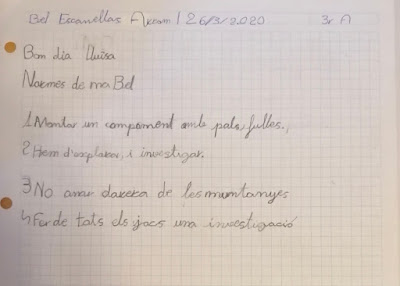 Bel Escanellas 26/3/2020 3r A
Bon dia Lluïsa
Normes de ma Bel
1 Montar un compoment amb pals, fulles.,
2 Hem d'esplorar, i investigar.
3 No anar darera de les muntanyes
4 Fer de tots els jocs una investigació